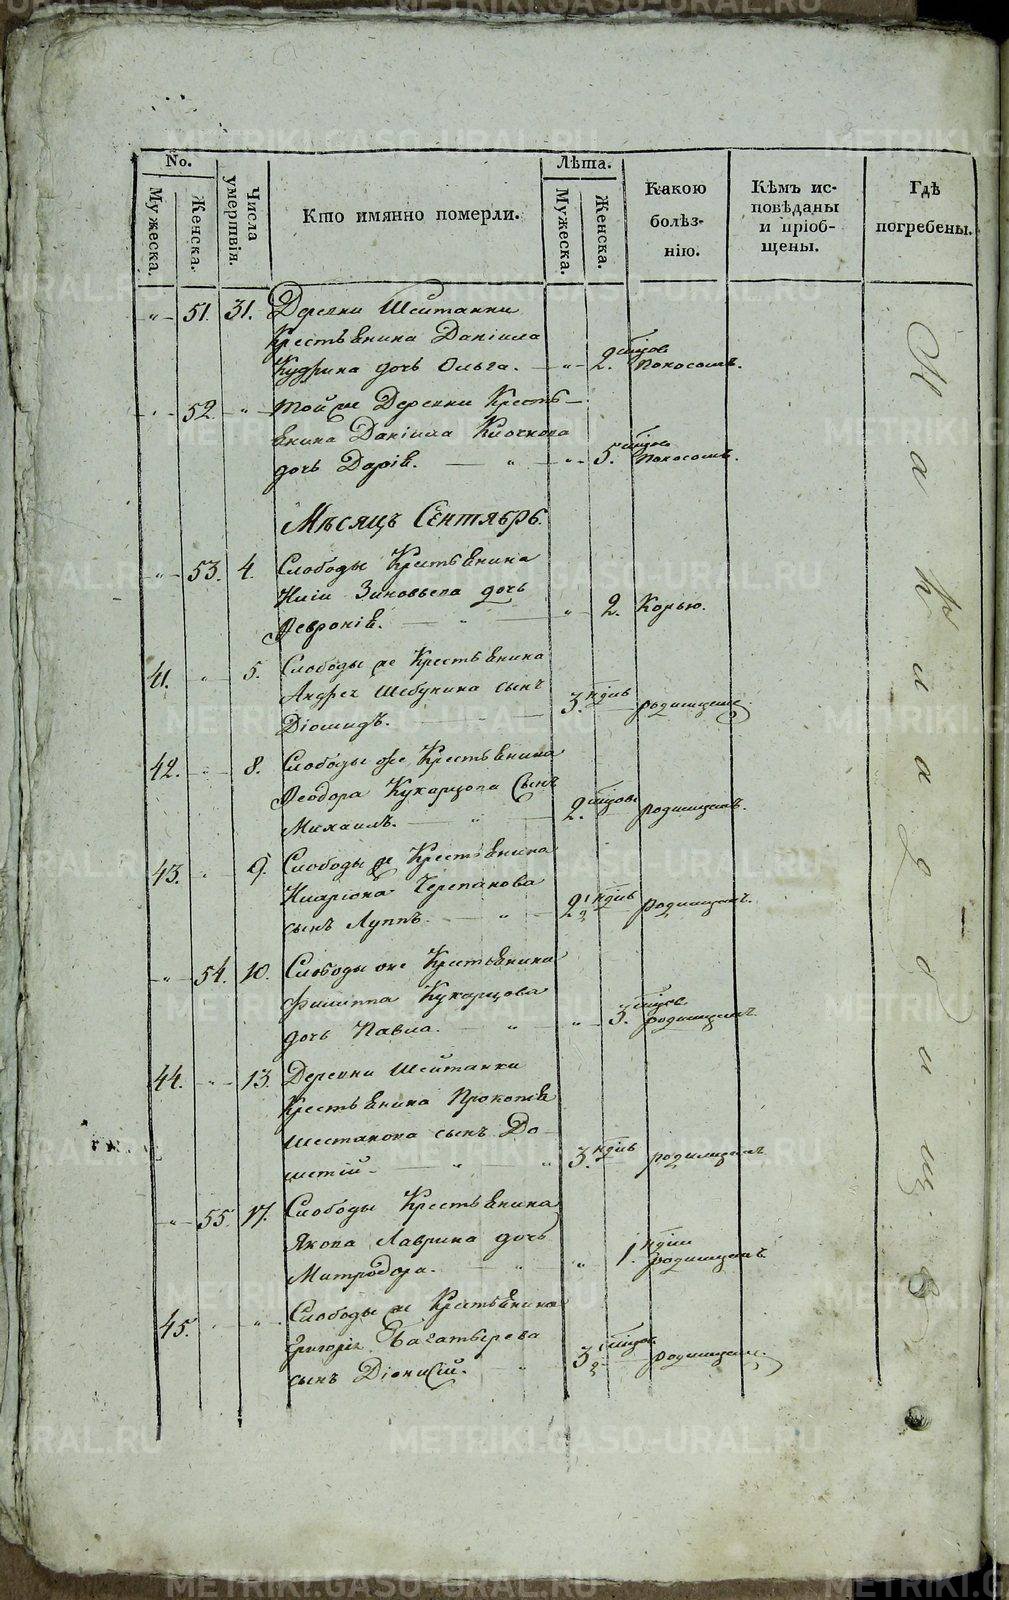 No.
Мужеска.
Женска.
Числа умертвія.
Кто имянно померли.
Лѣта.
Мужеска.
Женска.
Какою болѣз-нію.
Кѣмъ ис-повѣданы и пріоб-щены.
Гдѣ погребены.
51. 31. Деревни Шейтанки
Крестьянина Даніила
Кудрина дочь Ольга. 2. мѣсяцов Поносомъ.
52. Той же Деревни Кресть-
янина Даніила Клочкова
дочь Дарія. 5. мѣсяцов Поносомъ.
Мѣсяцъ Сентябрь.
53. 4. Слободы Крестьянина
Зиновьева дочь
Февронія. 2. Корью.
41. 5. Слободы же Крестьянина
Андрея Шебунина сынъ
Діомидъ. 3. нѣдѣль родимцемъ.
42. 8. Слободы же Крестьянина
Феодора Кукарцова Сынъ
Михаилъ. 2. мѣсяцовъ родимцемъ.
43. 9. Слободы же Крестьянина
Иларіона Черепанова
сынъ Луппъ. 2½ нѣдѣль родимцемъ.
54. 10. Слободы же Крестьянина
Филиппа Кукарцова
дочь Павла. 3. мѣсяцов родимцемъ.
44. 13. Деревни Шейтанки
Крестьянина Прокопія
Шестакова сынъ До-
метій. 3. нѣдѣль родимцемъ.
55. 17. Слободы Крестьянина
Якова Лаврина дочь
Митродора. 1. нѣдѣли родимцемъ.
45. Слободы же Крестьянина
Григорія Багатырева
сынъ Діонисій. 3 мѣсяцов родимцемъ.
METRIKI.GASO-URAL.RU